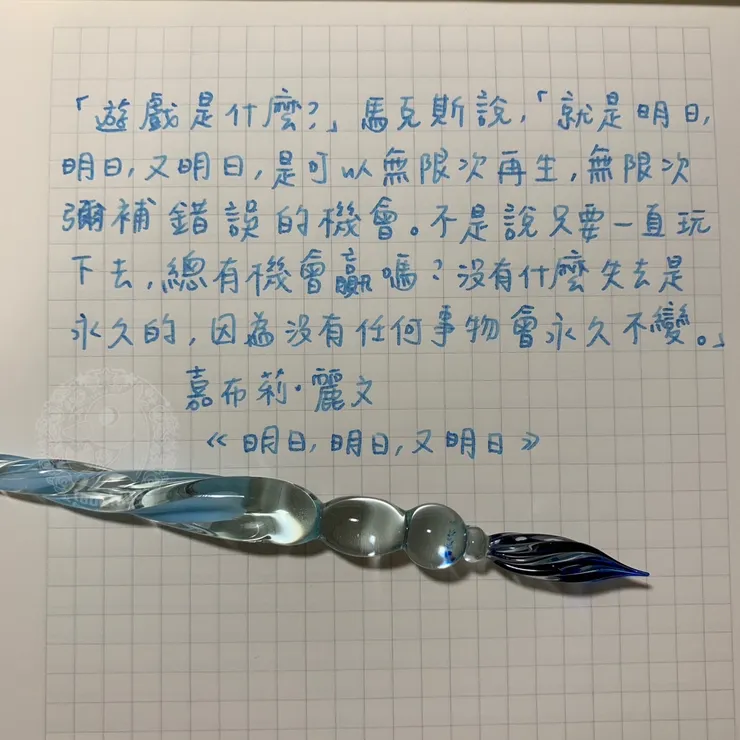 「遊戲是什麼?」馬克斯說,「就是明日,
明日,又明日,是可以無限次再生,無限次
彌補錯誤的機會。不是說只要一直玩
下去,總有機會贏嗎?沒有什麼失去是
永久的,因為沒有任何事物會永久不變。」
嘉布莉·麗文
《明日,明日,又明日》